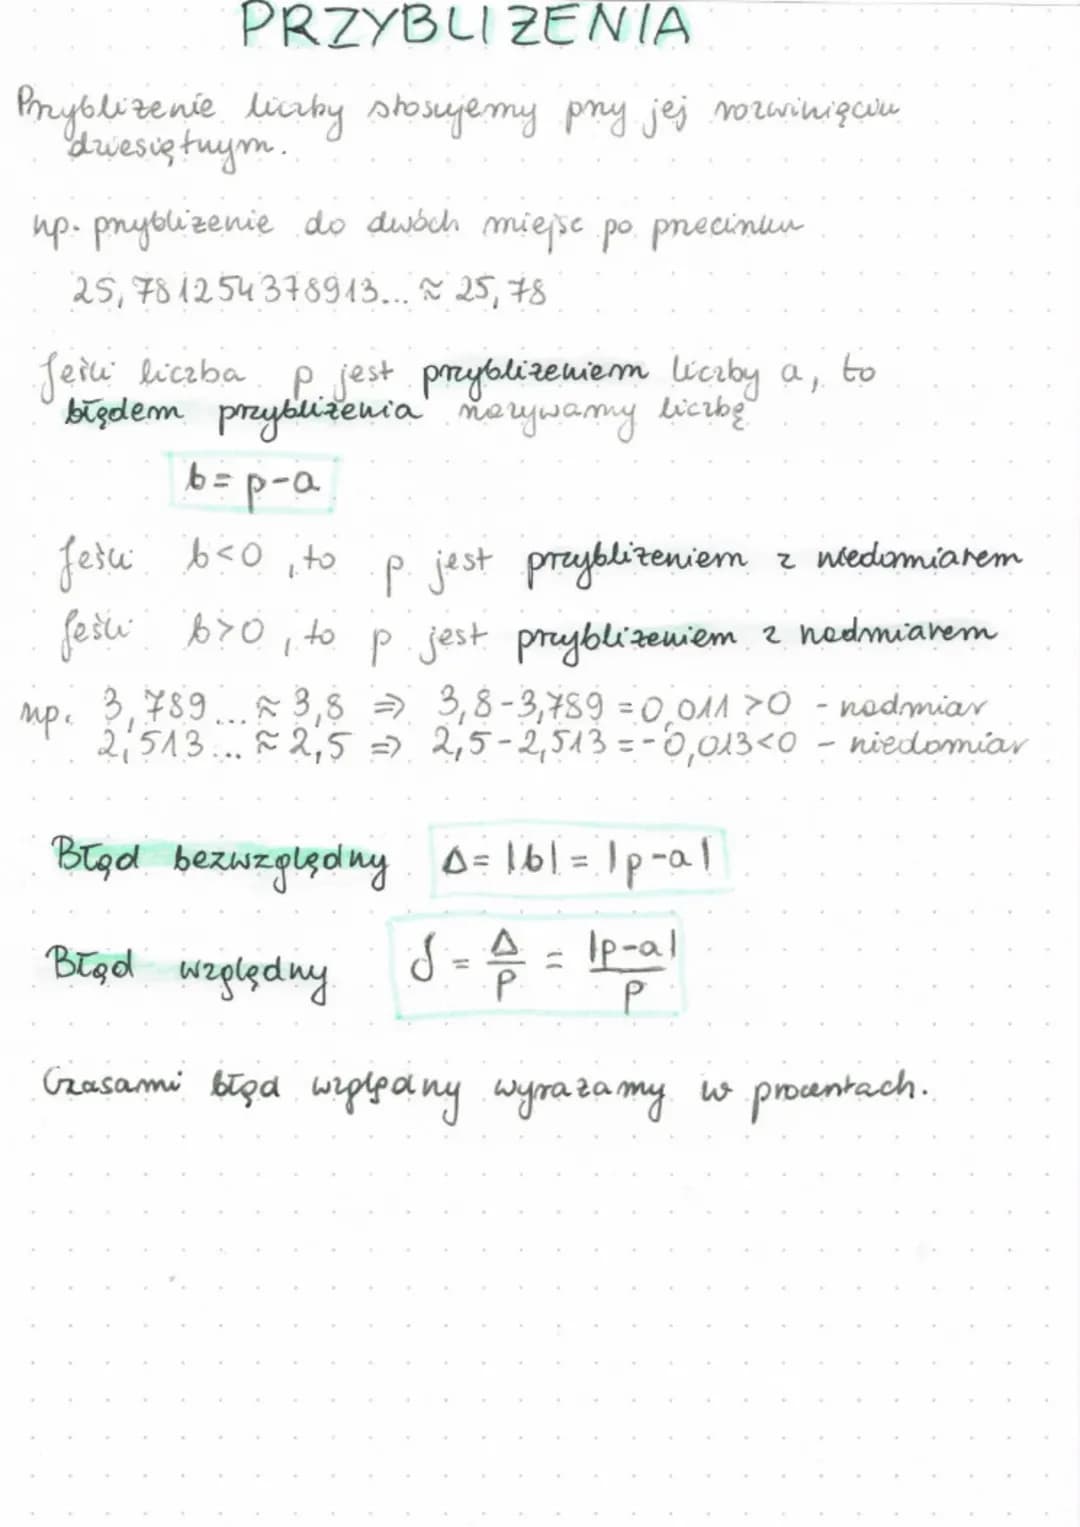 PRZYBLIŻENIA
Przybliżenie liczby stosujemy przy jej rozwinięciu
dziesiętnym.
np. przybliżenie do dwóch miejsc po przecinku
25,781254378913... ≈ 25,78
Jeśli liczba p jest przybliżeniem liczby a, to
błędem przybliżenia nazywamy liczbę
b = p-a
Jeśli b<0, to p jest przybliżeniem z niedomiarem
Jeśli b>0, to p jest przybliżeniem z nadmiarem
np. 3,789... ≈ 3,8 ⇒ 3,8-3,789 = 0,011 >0 - nadmiar
2,513... ≈ 2,5 ⇒ 2,5-2,513 = -0,013<0 - niedomiar
Błąd bezwzględny Δ = |b| = |p-a|
Błąd względny δ = Δ/p = |p-a|/p
Czasami błąd względny wyrażamy w procentach.